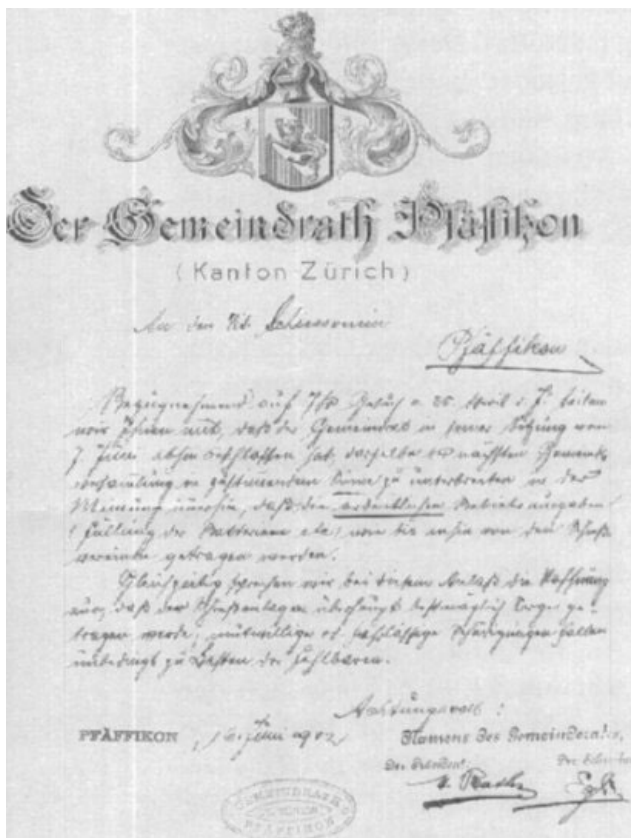 Der Gemeindrath Pfäffikon
(Kanton Zürich)
An den Schiessverein
Pfäffikon
Bezugnehmend auf Ihr Gesuch v. 25. April d. J. teilen
wir Ihnen mit, daß der Gemeindrat in seiner Sitzung vom
7. Juni beschlossen hat, dasselbe der nächsten Gemeinde-
versammlung in zustimmendem Sinne zu unterbreiten in der
Meinung immerhin, daß die ordentlichen Betriebsausgaben
(Füllung der Batterien etc.) wie bis anhin von den Schieß-
vereinen getragen werden.
Gleichzeitig sprechen wir bei diesem Anlaß die Hoffnung
aus, daß den Schießanlagen überhaupt bestmöglich Sorge ge-
tragen werde, mutwillige od. fahrlässige Schädigungen fallen
unbedingt zu Lasten der Fehlbaren.
Achtungsvoll:
PFÄFFIKON, Juni 1902
Namens des Gemeinderates,
Der Präsident: Der Schreiber
GEMEINDRATH
PFÄFFIKON